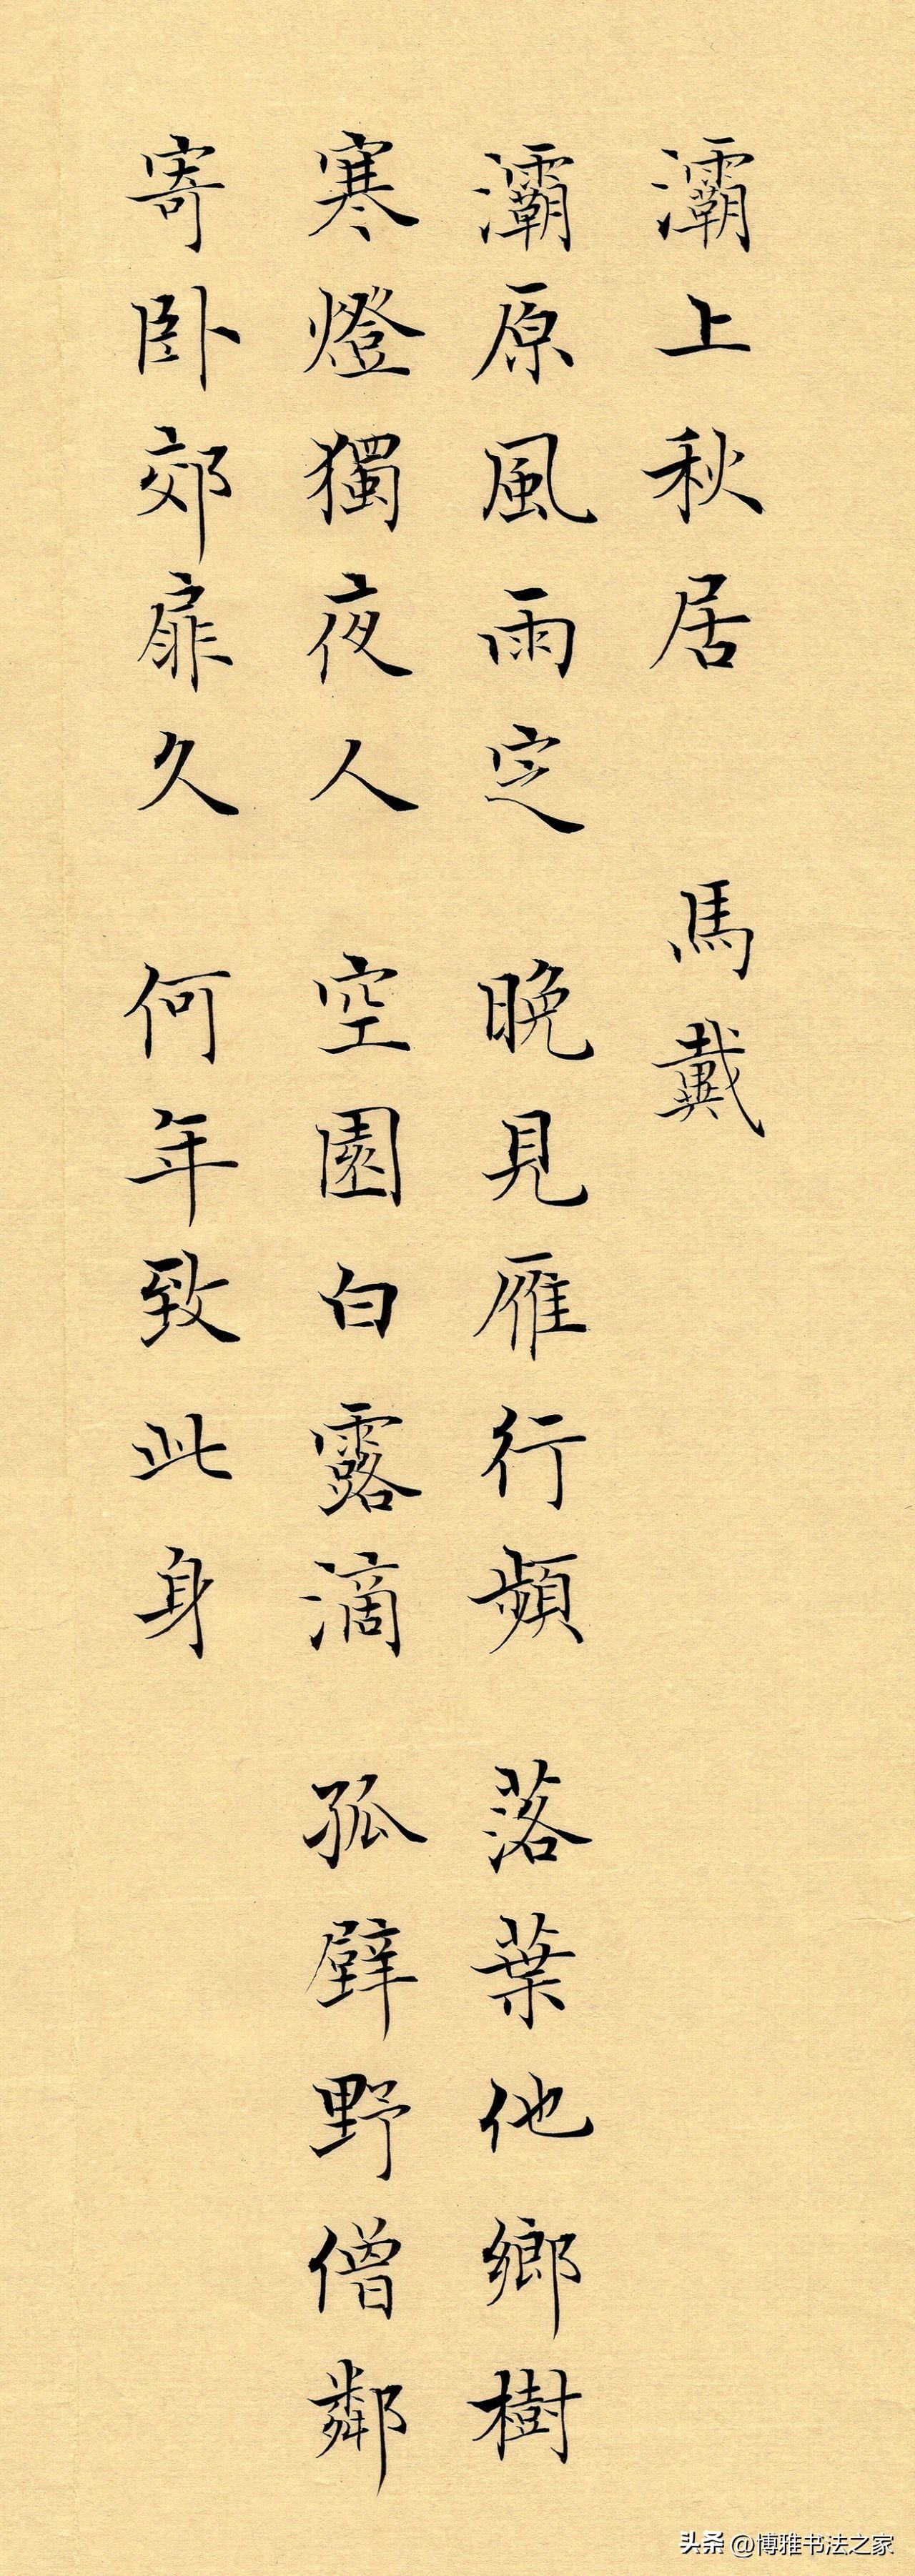 灞上秋居 馬戴
灞原風雨定 晚見雁行頻 落葉他鄉樹
寒燈獨夜人 空園白露滴 孤壁野僧鄰
寄卧郊扉久 何年致此身
头条 @博雅书法之家